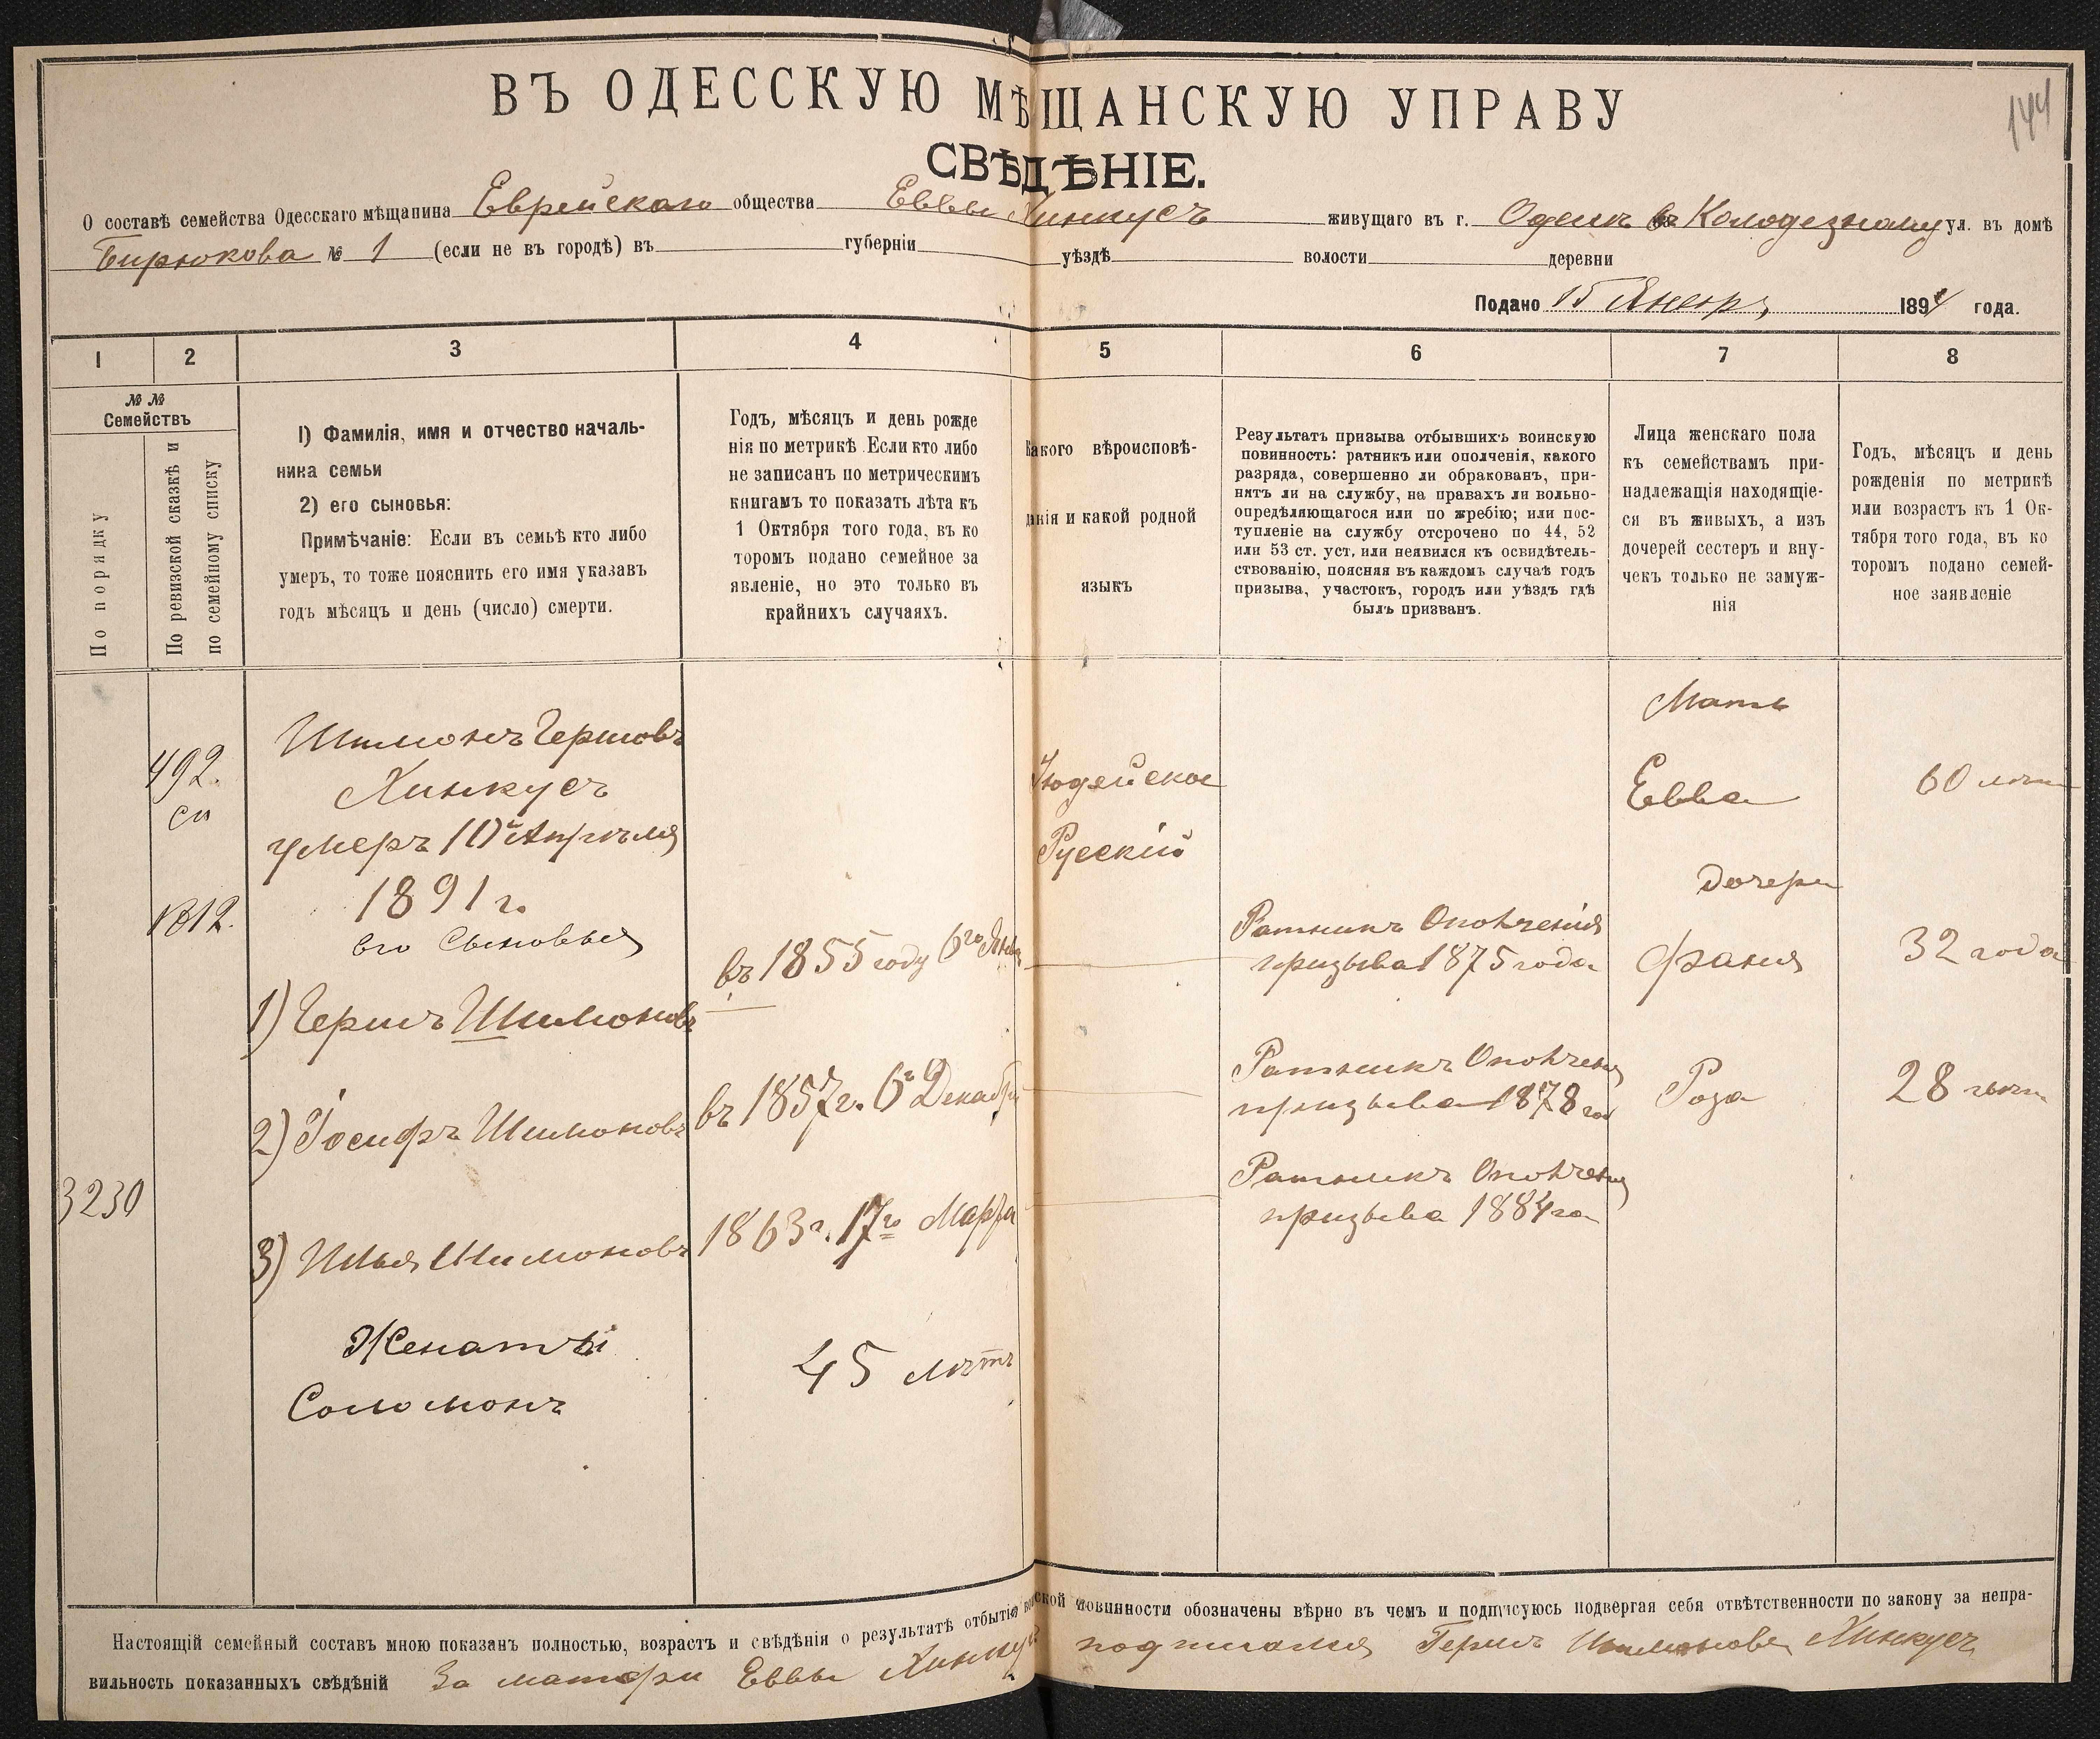 144
ВЪ ОДЕССКУЮ МѢЩАНСКУЮ УПРАВУ
СВѢДѢНІЕ.
О составѣ семейства Одесскаго мѣщанина Еврейскаго общества Еввы Хинкусъ живущаго въ г. Одессѣ по Колодезному ул. въ домѣ
Бирюкова № 1 (если не въ городѣ) въ губерніи уѣздѣ волости деревни
Подано 15 Январ, 1894 года.
1 2 3 4 5 6 7 8
№ №
Семействъ
По порядку
По ревизской сказкѣ и
по семейному списку
1) Фамилія, имя и отчество началь-
ника семьи
2) его сыновья:
Примѣчаніе: Если въ семьѣ кто либо
умеръ, то тоже пояснить его имя указавъ
годъ мѣсяцъ и день (число) смерти.
Годъ, мѣсяцъ и день рожде
нія по метрикѣ. Если кто либо
не записанъ по метрическимъ
книгамъ то показать лѣта къ
1 Октября того года, въ ко
торомъ подано семейное за
явленіе, но это только въ
крайнихъ случаяхъ.
Какого вѣроисповѣ-
данія и какой родной
языкъ
Результатъ призыва отбывшихъ воинскую
повинность: ратникъ или ополченія, какого
разряда, совершенно ли обракованъ, при-
нятъ ли на службу, на правахъ ли вольно-
опредѣляющагося или по жребію; или пос-
тупленіе на службу отсрочено по 44, 52
или 53 ст. уст. или неявился къ освидѣтель-
ствованію, поясняя въ каждомъ случаѣ годъ
призыва, участокъ, городъ или уѣздъ гдѣ
былъ призванъ.
Лица женскаго пола
къ семействамъ при-
надлежащія находящіе-
ся въ живыхъ, а изъ
дочерей сестеръ и вну-
чекъ только не замуж-
нія
Годъ, мѣсяцъ и день
рожденія по метрикѣ
или возрастъ къ 1 Ок-
тября того года, въ ко
торомъ подано семей-
ное заявленіе
492.
сп
1812.
3230
Шимонъ Гершовъ
Хинкусъ
умеръ 10го Апрѣля
1891 г.
его Сыновья
1) Гершъ Шимоновъ
2) Іосифъ Шимоновъ
3) Илья Шимоновъ
Женатый
Соломонъ
въ 1855 году 6го Янва
въ 1857 г. 6го Декабря
1863 г. 17го Марта
45 лѣтъ
Іюдейское
Русскій
Ратникъ Ополченія
призыва 1875 года
Ратникъ Ополченія
призыва 1878 год
Ратникъ Ополченія
призыва 1884 го
Мать
Евва
дочери
Фаня
Роза
60 лѣтъ
32 года
28 лѣтъ
Настоящій семейный составъ мною показанъ полностью, возрастъ и свѣдѣнія о результатѣ отбытія воинской повинности обозначены вѣрно въ чемъ и подписуюсь подвергая себя отвѣтственности по закону за непра-
вильность показанныхъ свѣдѣній За матери Еввы Хинкусъ подписался Гершъ Шимоновъ Хинкусъ